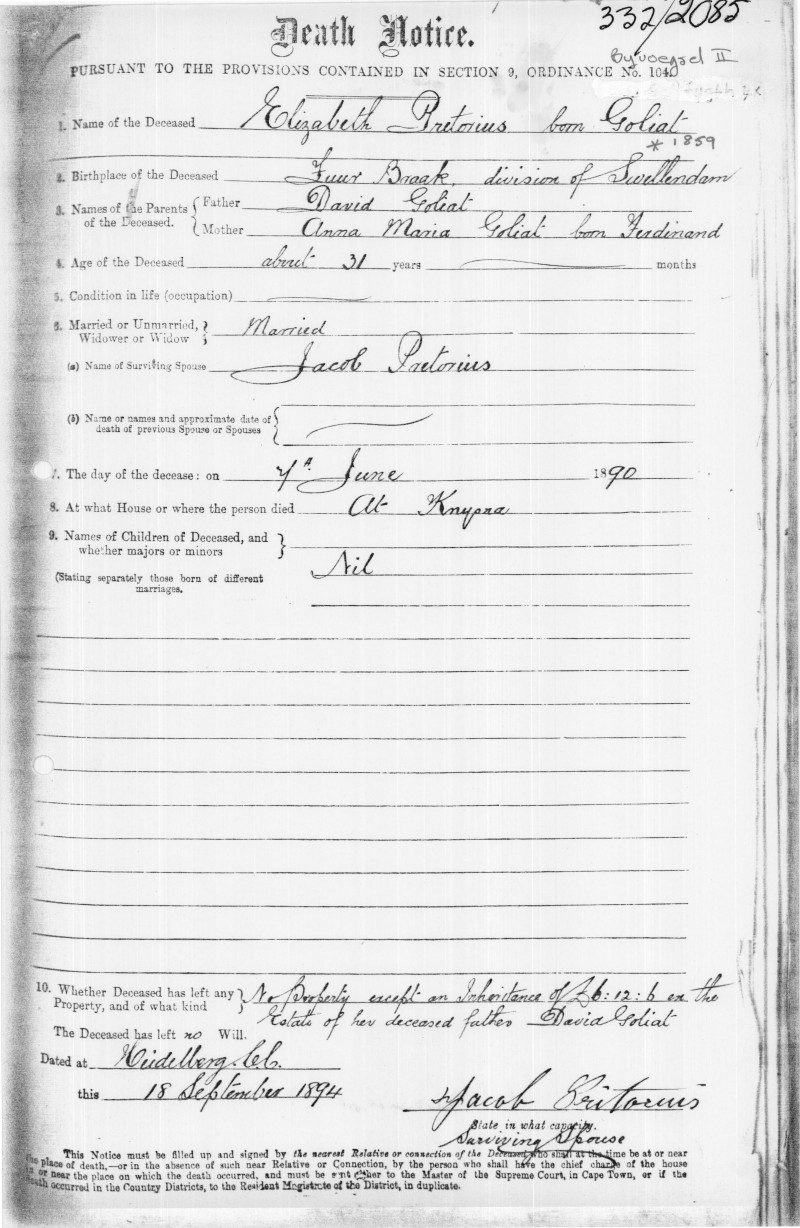 332/2085
Death Notice.
Byvoegsel II
PURSUANT TO THE PROVISIONS CONTAINED IN SECTION 9, ORDINANCE No. 104.
1. Name of the Deceased Elizabeth Pretorius born Goliat
* 1859
2. Birthplace of the Deceased Zuur Braak, division of Swellendam
3. Names of the Parents of the Deceased. { Father David Goliat
{ Mother Anna Maria Goliat born Ferdinand
4. Age of the Deceased about 31 years months
5. Condition in life (occupation)
6. Married or Unmarried, Widower or Widow } Married
(a) Name of Surviving Spouse Jacob Pretorius
(b) Name or names and approximate date of
death of previous Spouse or Spouses
7. The day of the decease: on June 1890
8. At what House or where the person died At Knysna
9. Names of Children of Deceased, and
whether majors or minors
Nil
(Stating separately those born of different
marriages.
10. Whether Deceased has left any Property, and of what kind } No Property except an Inheritance of £6:12:6 in the
Estate of her deceased father David Goliat
The Deceased has left no Will.
Dated at Heidelberg. C.C.
this 18 September 1894 Jacob Pritorius
State in what capacity.
Surviving Spouse
This Notice must be filled up and signed by the nearest Relative or connection of the Deceased, who shall at the time be at or near
the place of death,—or in the absence of such near Relative or Connection, by the person who shall have the chief charge of the house
in or near the place on which the death occurred, and must be sent either to the Master of the Supreme Court, in Cape Town, or if the
death occurred in the Country Districts, to the Resident Magistrate of the District, in duplicate.